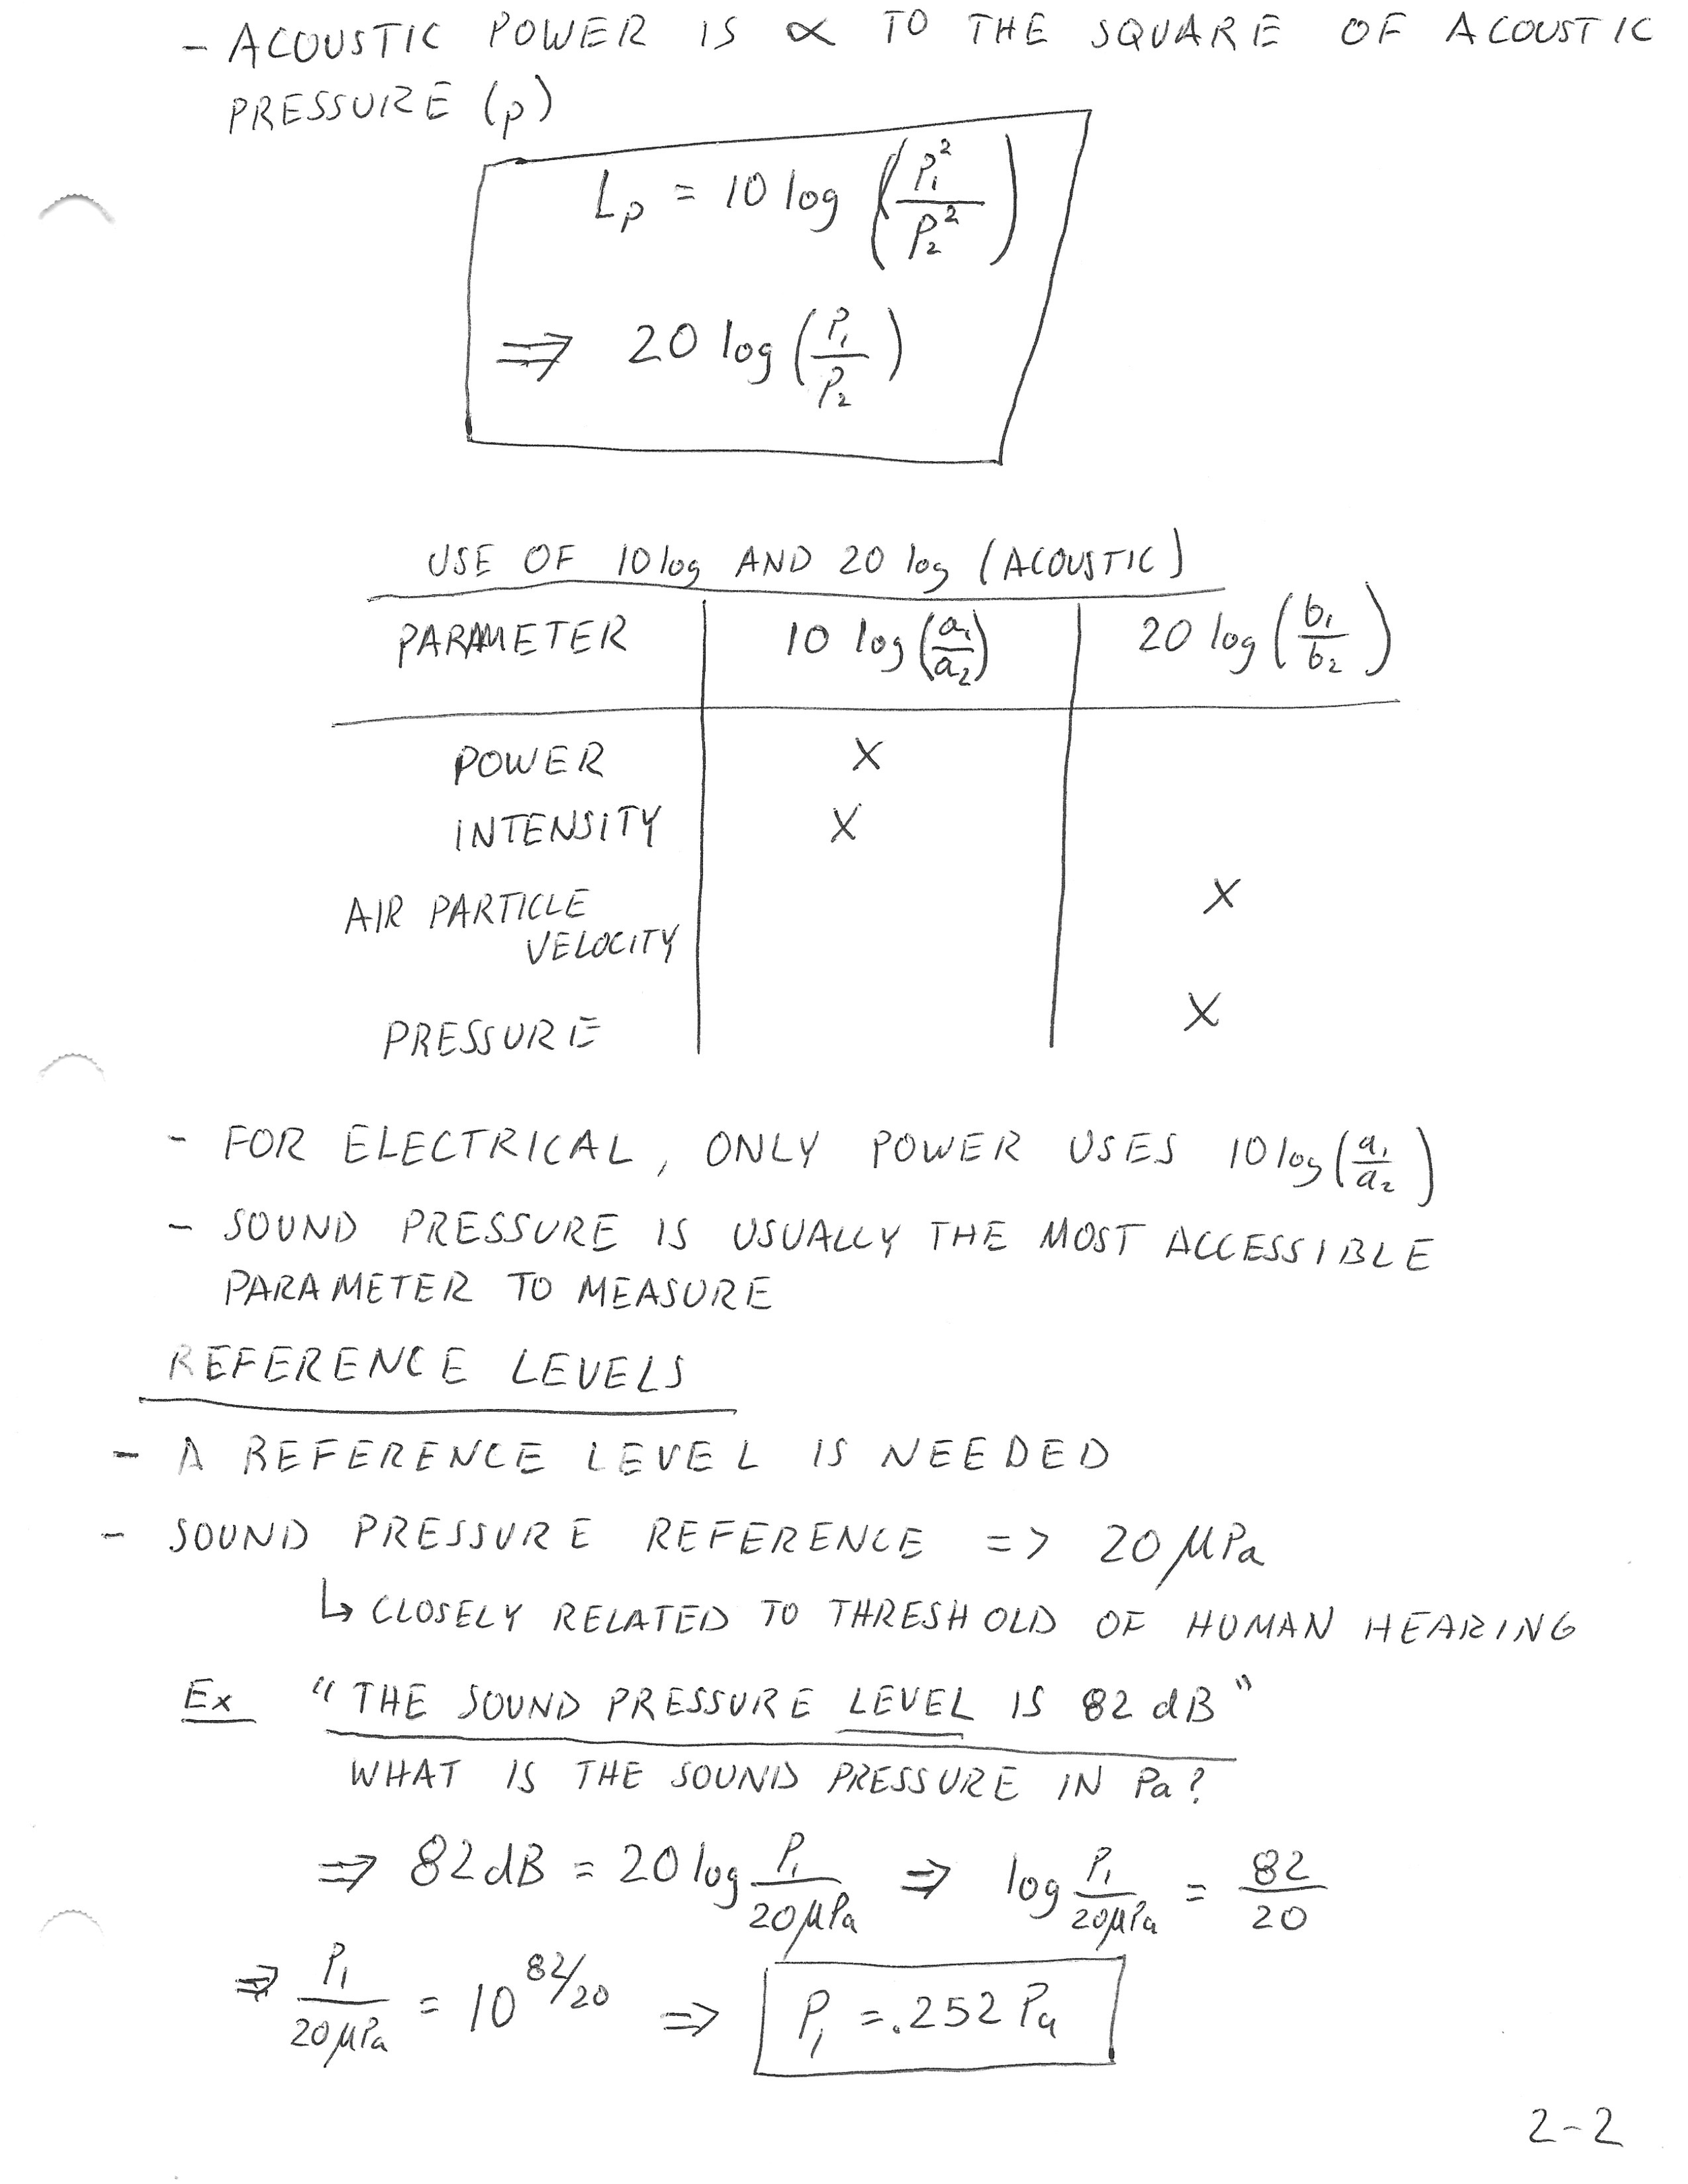 - ACOUSTIC POWER IS ∝ TO THE SQUARE OF ACOUSTIC
PRESSURE (p)
Lp = 10 log (P₁²/P₂²)
⇒ 20 log (P₁/P₂)
USE OF 10 log AND 20 log (ACOUSTIC)
PARAMETER 10 log (a₁/a₂) 20 log (b₁/b₂)
POWER X
INTENSITY X
AIR PARTICLE X
VELOCITY
PRESSURE X
- FOR ELECTRICAL, ONLY POWER USES 10 log (a₁/a₂)
- SOUND PRESSURE IS USUALLY THE MOST ACCESSIBLE
PARAMETER TO MEASURE
REFERENCE LEVELS
- A REFERENCE LEVEL IS NEEDED
- SOUND PRESSURE REFERENCE => 20 μPa
↳ CLOSELY RELATED TO THRESHOLD OF HUMAN HEARING
Ex "THE SOUND PRESSURE LEVEL IS 82 dB"
WHAT IS THE SOUND PRESSURE IN Pa?
⇒ 82 dB = 20 log P₁/20μPa ⇒ log P₁/20μPa = 82/20
⇒ P₁/20μPa = 10^82/20 ⇒ P₁ = .252 Pa
2-2